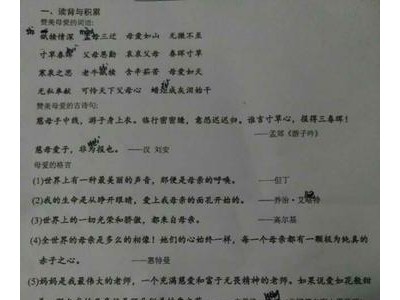 一、读背与积累
赞美母爱的词语:
舐犊情深 孟母三迁 母爱如山 无微不至
寸草春晖 父母恩勤 哀哀父母 春晖寸草
寒泉之思 老牛舐犊 含辛茹苦 母爱如天
无私奉献 可怜天下父母心 蜡炬成灰泪始干
赞美母爱的古诗句:
慈母手中线,游子身上衣。临行密密缝,意恐迟迟归。谁言寸草心,报得三春晖!
——孟郊《游子吟》
慈母爱子,非为报也。 ——汉 刘安
母爱的格言
(1)世界上有一种最美丽的声音,那便是母亲的呼唤。 ——但丁
(2)我的生命是从睁开眼睛,爱上我母亲的面孔开始的。 ——乔治·艾略特
(3)世界上的一切光荣和骄傲,都来自母亲。 ——高尔基
(4)全世界的母亲是多么的相像!她们的心始终一样,每一个母亲都有一颗极为纯真的
赤子之心。 ——惠特曼
(5)妈妈是我最伟大的老师,一个充满慈爱和富于无畏精神的老师。如果说爱如花般甜